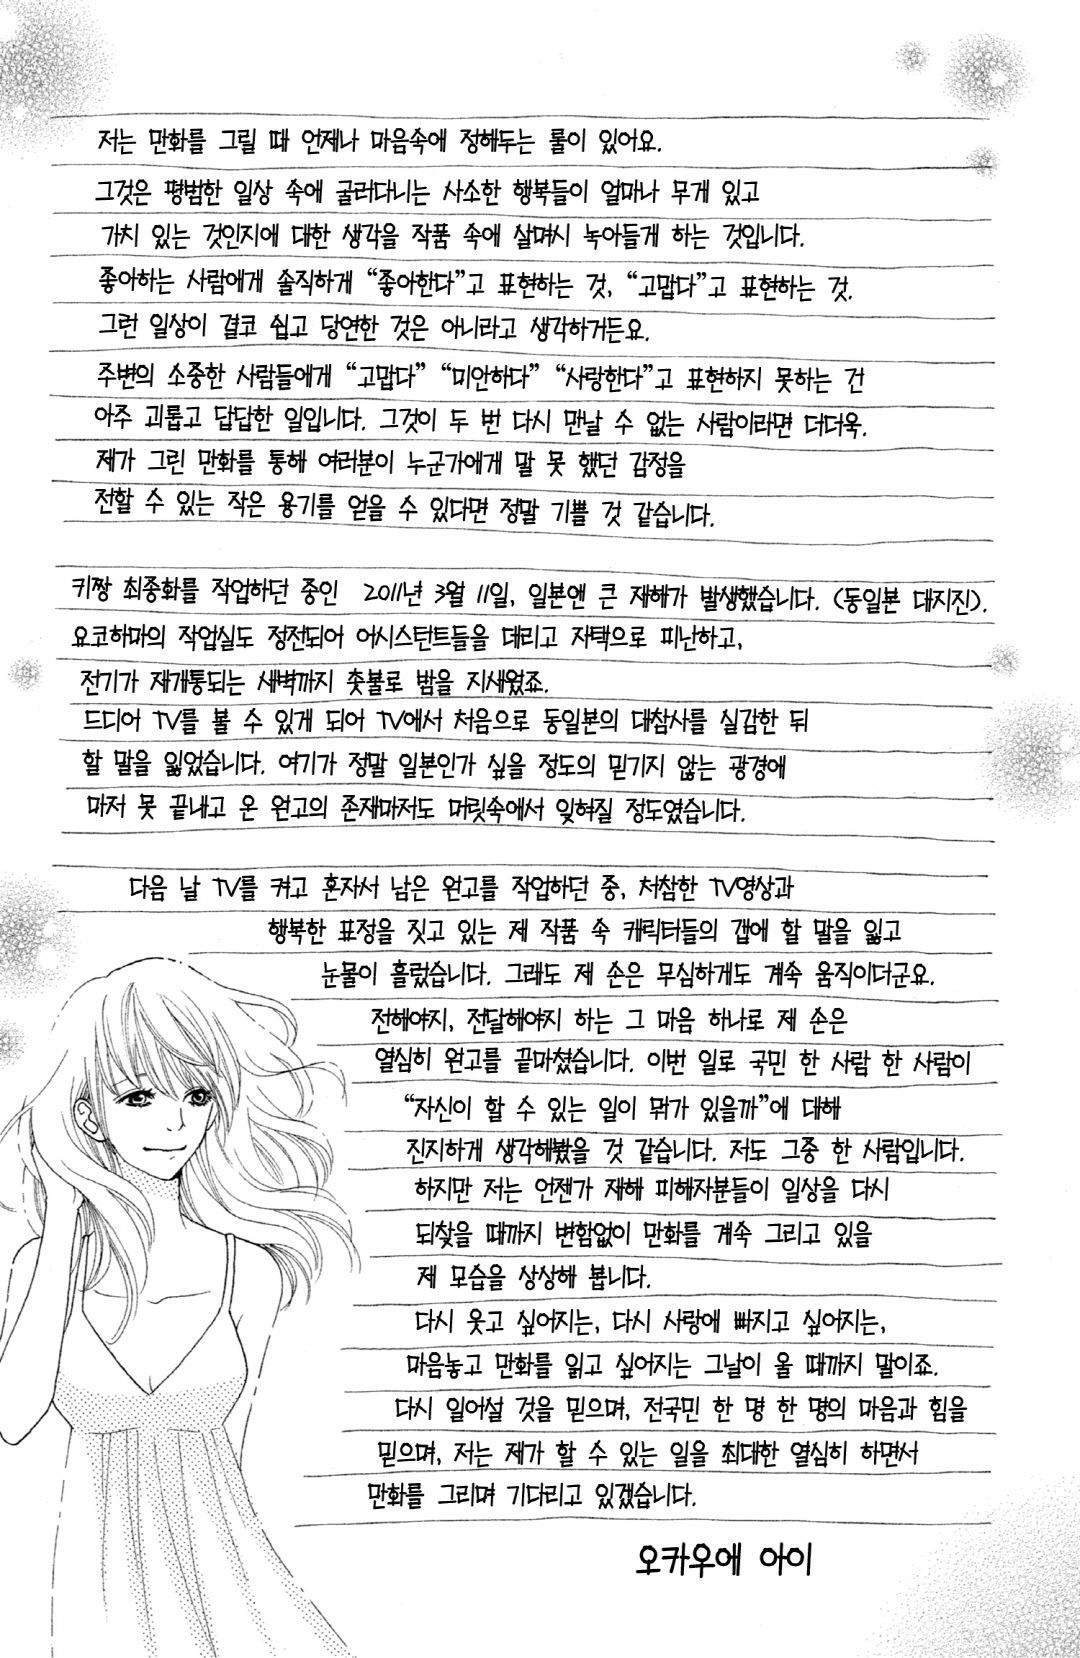 저는 만화를 그릴 때 언제나 마음속에 정해두는 룰이 있어요.
그것은 평범한 일상 속에 굴러다니는 사소한 행복들이 얼마나 무게 있고
가치 있는 것인지에 대한 생각을 작품 속에 살며시 녹아들게 하는 것입니다.
좋아하는 사람에게 솔직하게 “좋아한다”고 표현하는 것, “고맙다”고 표현하는 것.
그런 일상이 결코 쉽고 당연한 것은 아니라고 생각하거든요.
주변의 소중한 사람들에게 “고맙다” “미안하다” “사랑한다”고 표현하지 못하는 건
아주 괴롭고 답답한 일입니다. 그것이 두 번 다시 만날 수 없는 사람이라면 더더욱.
제가 그린 만화를 통해 여러분이 누군가에게 말 못 했던 감정을
전할 수 있는 작은 용기를 얻을 수 있다면 정말 기쁠 것 같습니다.
키짱 최종화를 작업하던 중인 2011년 3월 11일, 일본엔 큰 재해가 발생했습니다. (동일본 대지진).
요코하마의 작업실도 정전되어 어시스턴트들을 데리고 자택으로 피난하고,
전기가 재개통되는 새벽까지 촛불로 밤을 지새웠죠.
드디어 TV를 볼 수 있게 되어 TV에서 처음으로 동일본의 대참사를 실감한 뒤
할 말을 잃었습니다. 여기가 정말 일본인가 싶을 정도의 믿기지 않는 광경에
마저 못 끝내고 온 원고의 존재마저도 머릿속에서 잊혀질 정도였습니다.
다음 날 TV를 켜고 혼자서 남은 원고를 작업하던 중, 처참한 TV영상과
행복한 표정을 짓고 있는 제 작품 속 캐릭터들의 갭에 할 말을 잃고
눈물이 흘렀습니다. 그래도 제 손은 무심하게도 계속 움직이더군요.
전해야지, 전달해야지 하는 그 마음 하나로 제 손은
열심히 원고를 끝마쳤습니다. 이번 일로 국민 한 사람 한 사람이
“자신이 할 수 있는 일이 뭐가 있을까”에 대해
진지하게 생각해봤을 것 같습니다. 저도 그중 한 사람입니다.
하지만 저는 언젠가 재해 피해자분들이 일상을 다시
되찾을 때까지 변함없이 만화를 계속 그리고 있을
제 모습을 상상해 봅니다.
다시 웃고 싶어지는, 다시 사랑에 빠지고 싶어지는,
마음놓고 만화를 읽고 싶어지는 그날이 올 때까지 말이죠.
다시 일어설 것을 믿으며, 전국민 한 명 한 명의 마음과 힘을
믿으며, 저는 제가 할 수 있는 일을 최대한 열심히 하면서
만화를 그리며 기다리고 있겠습니다.
오카우에 아이